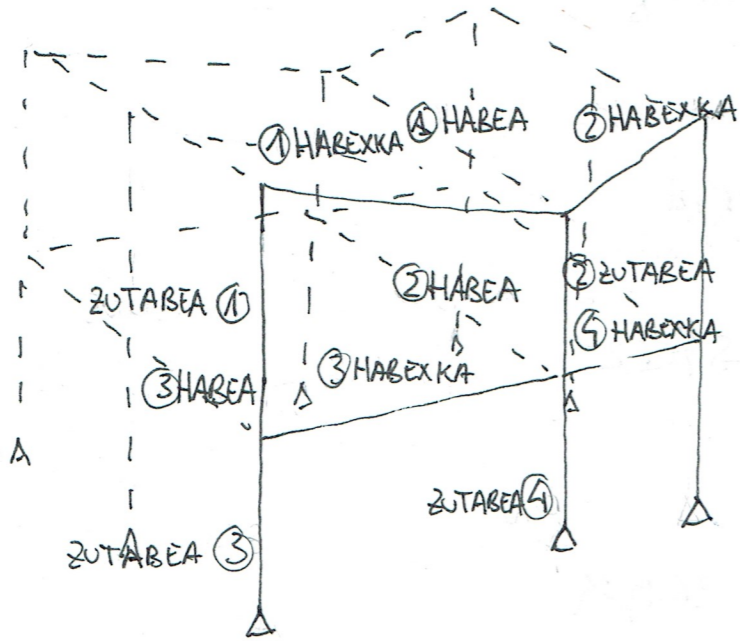 ① HABEXKA
① HABEA
② HABEXKA
ZUTABEA ①
② HABEA
② ZUTABEA
③ HABEA
③ HABEXKA
④ HABEXKA
ZUTABEA ③
ZUTABEA ④